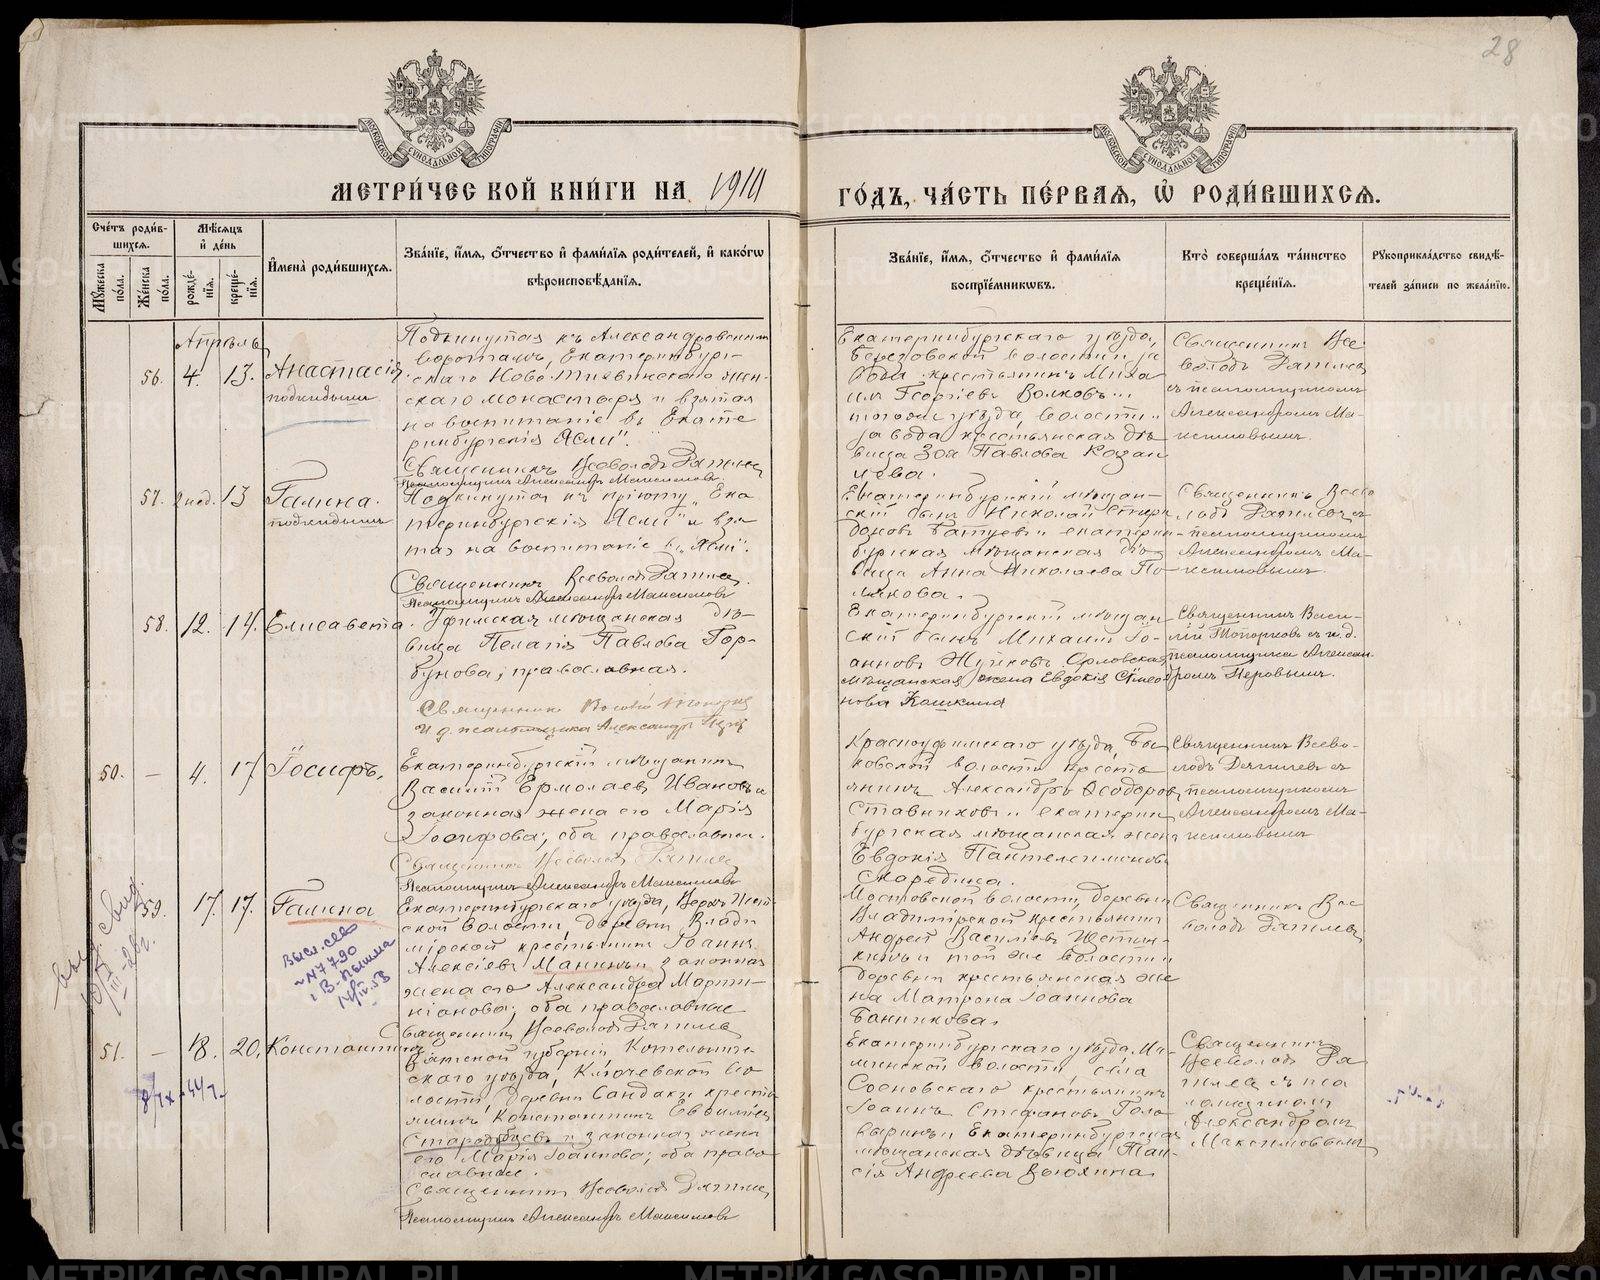 28
МОСКОВСКОЙ СѴНОДАЛЬНОЙ ТИПОГРАФІИ
МОСКОВСКОЙ СѴНОДАЛЬНОЙ ТИПОГРАФІИ
МЕТРИ́ЧЕСКОЙ КНИ́ГИ НА 1910
ГО́ДЪ, ЧА́СТЬ ПЕ́РВАЯ, Ѽ РОДИ́ВШИХСЯ.
Сче́тъ роди́вшихся.
Мꙋ́жеска по́ла.
Же́нска по́ла.
Мѣ́сяцъ и҆ де́нь
рожде́нїя.
креще́нїя.
И҆мена̀ роди́вшихся.
Зва́нїе, и҆́мя, ѻ҆́тчество и҆ фами́лїя роди́телей, и҆ како́гѡ
вѣроисповѣ́данїя.
Зва́нїе, и҆́мя, ѻ҆́тчество и҆ фами́лїя
воспрїе́мникѡвъ.
Кто̀ соверша́лъ та́инство
креще́нїя.
Рꙋкоприкла́дство свидѣ́-
телей за́писи по жела́нїю.
Апрѣль
56. 4. 13. Анастасія
подкидышъ
Подкинутая къ Александровскимъ
воротамъ, Екатеринбург-
скаго Ново-Тихвинскаго жен-
скаго монастыря и взятая
на воспитаніе въ Екате
ринбургскія „Ясли".
Священникъ Всеволодъ
Псаломщикъ Александръ Максимовъ
Екатеринбургскаго уѣзда,
Березовской волости и за
вода крестьянинъ Миха
илъ Георгіевъ Волковъ и
того же уѣзда волости и
завода крестьянская дѣ
вица Зоя Павлова Казан
цева.
Священникъ Все
володъ
съ псаломщикомъ
Александромъ Ма-
ксимовымъ.
57. 2 нед. 13 Галина.
подкидышъ
Подкинутая къ пріюту „Ека
теринбургскія Ясли" и взя
тая на воспитаніе въ „Ясли".
Священникъ Всеволодъ
Псаломщикъ Александръ Максимовъ
Екатеринбургскій мѣщан-
скій сынъ Николай
и екатерин-
бургская мѣщанская дѣ-
вица Анна Николаева По-
лякова.
Священникъ Всево
лодъ съ
псаломщикомъ
Александромъ Ма-
ксимовымъ.
58. 12. 14. Елисавета.
Уфимская мѣщанская дѣ-
вица Пелагія Павлова Гор-
бунова, православная.
Священникъ Топорковъ
И. д. псаломщика Александръ
Екатеринбургскій мѣщан
скій сынъ Михаилъ Іо-
анновъ Орловская
мѣщанская жена Евдокія Симео
нова Кошкина
Священникъ Васи-
лій Топорковъ съ и.д.
псаломщика Алексан-
дромъ Перовымъ.
50. — 4. 17 Іосифъ.
Екатеринбургскій мѣщанинъ
Василій Ермолаевъ Ивановъ и
законная жена его Марія
Іосифова; оба православные.
Священникъ Всеволодъ
Псаломщикъ Александръ Максимовъ
Красноуфимскаго уѣзда, Бы
ковской волости кресть
янинъ Александръ Ѳеодоровъ
Ставниковъ и екатерин
бургская мѣщанская жена
Евдокія Пантелеимонова
Скаредина.
Священникъ Всево-
лодъ съ
псаломщикомъ
Александромъ Ма-
ксимовымъ
59. 17. 17. Галина
Екатеринбургскаго уѣзда, Верх-
ской волости, деревни Влади
мірской крестьянинъ Іоаннъ
Алексіевъ Манинъ и законная
жена его Александра Марти-
ніанова; оба православные
Священникъ Всеволодъ
Мостовской волости, деревни
Владимірской крестьянинъ
Андрей Василіевъ
и той же волости и
деревни крестьянская же
на Матрона Іоаннова
Банникова.
Священникъ Все
володъ
выд. свид.
Высл. св-во
№ 7790
в В-Пышма
14/IV.53
51. — 18. 20. Константинъ
Вятской губерніи Котельнич-
скаго уѣзда, Ключевской во
лости, деревни Сандаки кресть
янинъ Константинъ
Стародубцевъ и законная жена
его Марія Іоаннова; оба право
славные.
Священникъ Всеволодъ
Псаломщикъ Александръ Максимовъ
Екатеринбургскаго уѣзда, Ма-
минской волости села
Сосновскаго крестьянинъ
Іоаннъ Стефановъ Голо
выринъ и Екатеринбургская
мѣщанская дѣвица Таи-
сія Андреева Вьюхина
Священникъ
Всеволодъ
съ пса
ломщикомъ
Александромъ
Максимовымъ